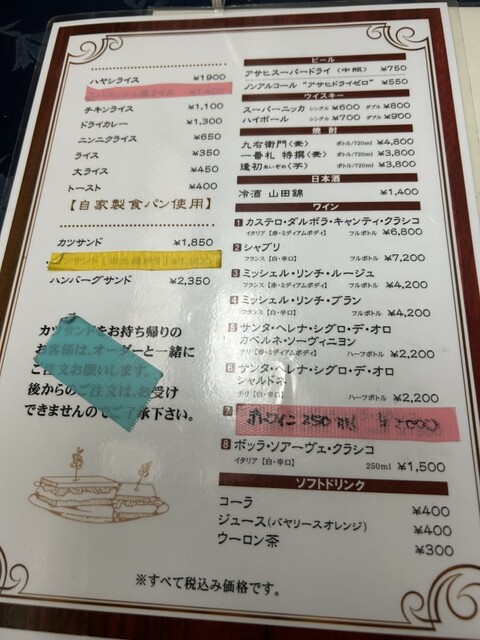 ハヤシライス ¥1900
チキンライス ¥1,100
ドライカレー ¥1,300
ニンニクライス ¥650
ライス ¥350
大ライス ¥450
トースト ¥400
【自家製食パン使用】
カツサンド ¥1,850
ハンバーグサンド ¥2,350
カツサンドをお持ち帰りの
お客様は、オーダーと一緒に
ご注文お願いします。
後からのご注文は、お受け
できませんのでご了承下さい。
ビール
アサヒスーパードライ〈中瓶〉 ¥750
ノンアルコール "アサヒドライゼロ" ¥550
ウイスキー
スーパーニッカ シングル ¥600 ダブル ¥800
ハイボール シングル ¥700 ダブル ¥900
焼酎
九右衛門〈麦〉 ボトル/720ml ¥4,800
一番札 特撰〈麦〉 ボトル/720ml ¥3,800
逢初あいぞめ〈芋〉 ボトル/720ml ¥3,800
日本酒
冷酒 山田錦 ¥1,400
ワイン
1 カステロ・ダルボラ・キャンティ・クラシコ
イタリア【赤・ミディアムボディ】 フルボトル ¥6,800
2 シャブリ
フランス【白・辛口】 フルボトル ¥7,200
3 ミッシェル・リンチ・ルージュ
フランス【赤・ミディアムボディ】 フルボトル ¥4,200
4 ミッシェル・リンチ・ブラン
フランス【白・辛口】 フルボトル ¥4,200
5 サンタ・ヘレナ・シグロ・デ・オロ
カベルネ・ソーヴィニヨン
チリ【赤・ミディアムボディ】 ハーフボトル ¥2,200
6 サンタ・ヘレナ・シグロ・デ・オロ
シャルドネ
チリ【白・辛口】 ハーフボトル ¥2,200
7 赤ワイン 250
8 ボッラ・ソアーヴェ・クラシコ
イタリア【白・辛口】 250ml ¥1,500
ソフトドリンク
コーラ ¥400
ジュース(バヤリースオレンジ) ¥400
ウーロン茶 ¥300
※すべて税込み価格です。